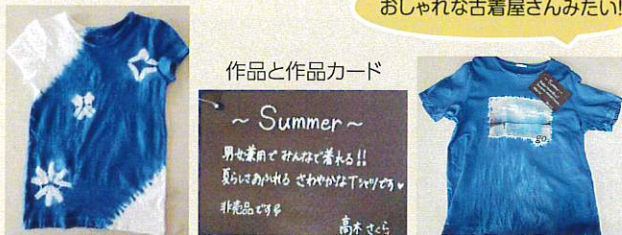 おしゃれな古着屋さんみたい!
作品と作品カード
~ Summer ~
男女兼用で みんなで着れる!!
夏らしさあふれる さわやかなTシャツです♥
非売品です
高木さくら
go